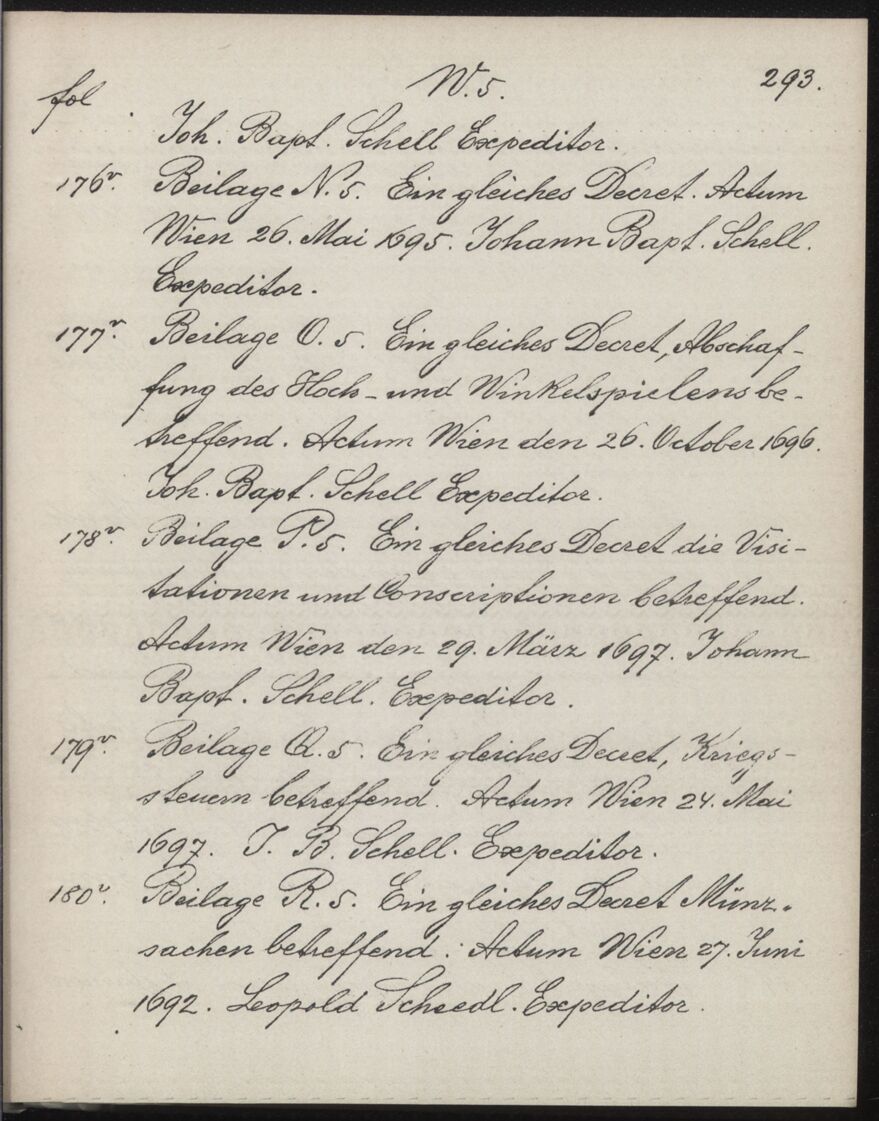 fol W. 5. 293.
Joh. Bapt. Schell Expeditor.
176v. Beilage N. 5. Ein gleiches Decret. Actum
Wien 26. Mai 1695. Johann Bapt. Schell.
Expeditor.
177v. Beilage O. 5. Ein gleiches Decret, Abschaf-
fung des Hoch- und Winkelspielens be-
treffend. Actum Wien den 26. October 1696.
Joh. Bapt. Schell Expeditor.
178v. Beilage P. 5. Ein gleiches Decret die Visi-
tationen und Conscriptionen betreffend.
Actum Wien den 29. März 1697. Johann
Bapt. Schell. Expeditor.
179v. Beilage Q. 5. Ein gleiches Decret, Kriegs-
steuern betreffend. Actum Wien 24. Mai
1697. J. B. Schell. Expeditor.
180v. Beilage R. 5. Ein gleiches Decret Münz-
sachen betreffend. Actum Wien 27. Juni
1692. Leopold Scheedl. Expeditor.